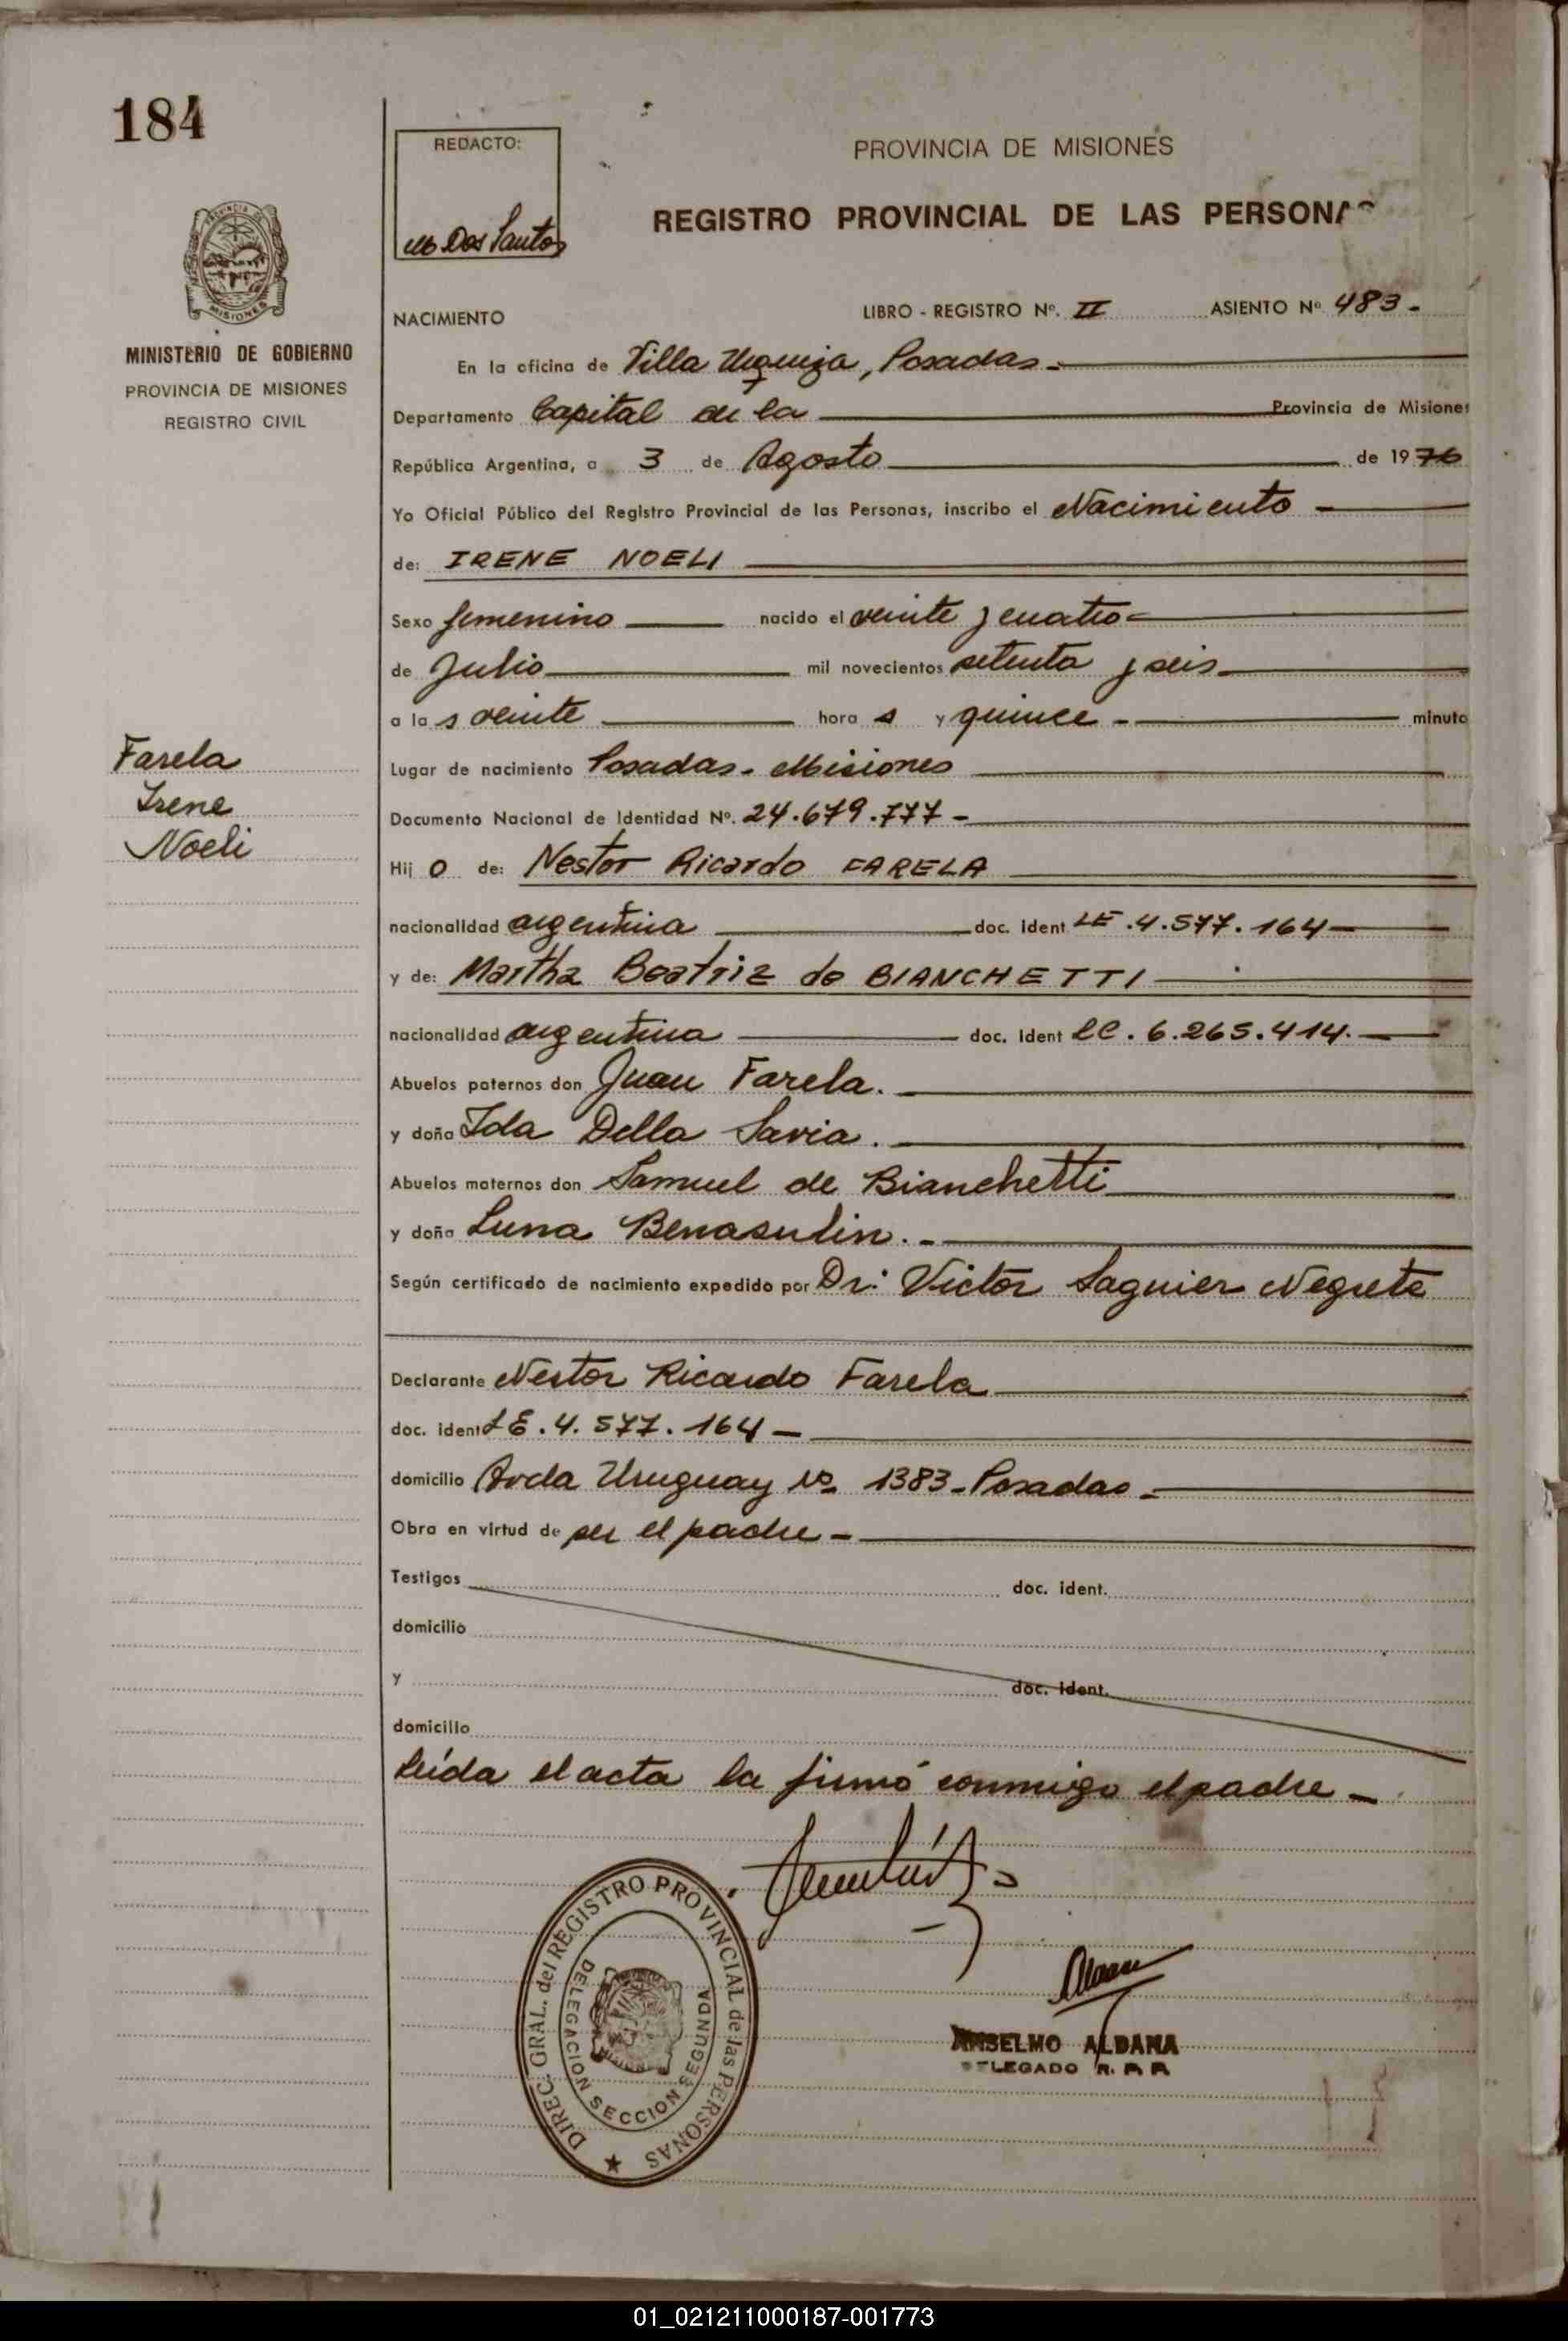 184
REDACTO:
Dos Santos
PROVINCIA DE MISIONES
REGISTRO PROVINCIAL DE LAS PERSONAS
PROVINCIA DE
MISIONES
MINISTERIO DE GOBIERNO
PROVINCIA DE MISIONES
REGISTRO CIVIL
NACIMIENTO
LIBRO - REGISTRO Nº. II ASIENTO Nº 483-
En la oficina de Villa Urquiza, Posadas.-
Departamento Capital de la Provincia de Misiones
República Argentina, a 3 de Agosto de 1976
Yo Oficial Público del Registro Provincial de las Personas, inscribo el Nacimiento -
de: IRENE NOELI
Sexo femenino nacido el veinte y cuatro-
de Julio mil novecientos setenta y seis
a las veinte horas y quince - minuto
Farela
Irene
Noeli
Lugar de nacimiento Posadas - Misiones
Documento Nacional de Identidad Nº. 24.679.777-
Hijo de: Nestor Ricardo FARELA
nacionalidad argentina doc. ident LE.4.577.164-
y de: Martha Beatriz de BIANCHETTI
nacionalidad argentina doc. ident LC. 6.265.414.-
Abuelos paternos don Juan Farela.
y doña Ida Della Savia.
Abuelos maternos don Samuel de Bianchetti
y doña Luna Benasulin.-
Según certificado de nacimiento expedido por Dr: Victor Saguier Negrete
Declarante Nestor Ricardo Farela
doc. ident LE.4.577.164-
domicilio Avda Uruguay Nº 1383-Posadas-
Obra en virtud de ser el padre-
Testigos doc. ident.
domicilio
y doc. ident.
domicilio
Leída el acta la firmó conmigo el padre-
DIREC. GRAL. del REGISTRO PROVINCIAL de las PERSONAS
DELEGACION SECCION SEGUNDA
ANSELMO ALDANA
DELEGADO R. P. P.
01_021211000187-001773